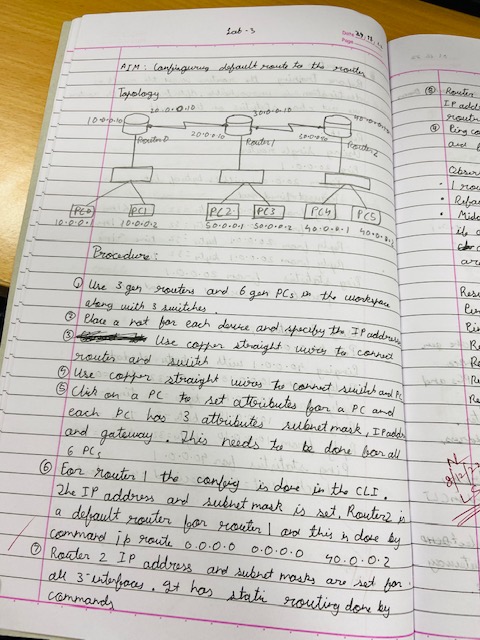 Lab - 3
Date
Page
AIM: Configuring default route to the router
Topology
20.0.0.10
30.0.0.10
10.0.0.10
20.0.0.
Router0
Router1
Router2
PC0
PC1
PC2
PC3
PC4
PC5
10.0.0.1
10.0.0.2
50.0.0.1
50.0.0.2
40.0.0.1
40.0.0.2
Procedure:
① Use 3 gen routers and 6 gen PCs in the workspace
along with 3 switches.
② Place a not for each device and specify the IP address
③ Use copper straight wires to connect
router and switch
④ Use copper straight wires to connect switch and PC
⑤ Click on a PC to set attributes for a PC and
each PC has 3 attributes subnet mask, IP addr
and gateway. This needs to be done for all
6 PCs
⑥ For router 1 the config is done in the CLI.
The IP address and subnet mask is set. Router2 is
a default router for router 1 and this is done by
command ip route 0.0.0.0 0.0.0.0 40.0.0.2
⑦ Router 2 IP address and subnet masks are set for
all 3-interfaces. It has static routing done by
commands
⑧ Router
IP add
routin
⑨ Ping co
and
Obser
1 rou